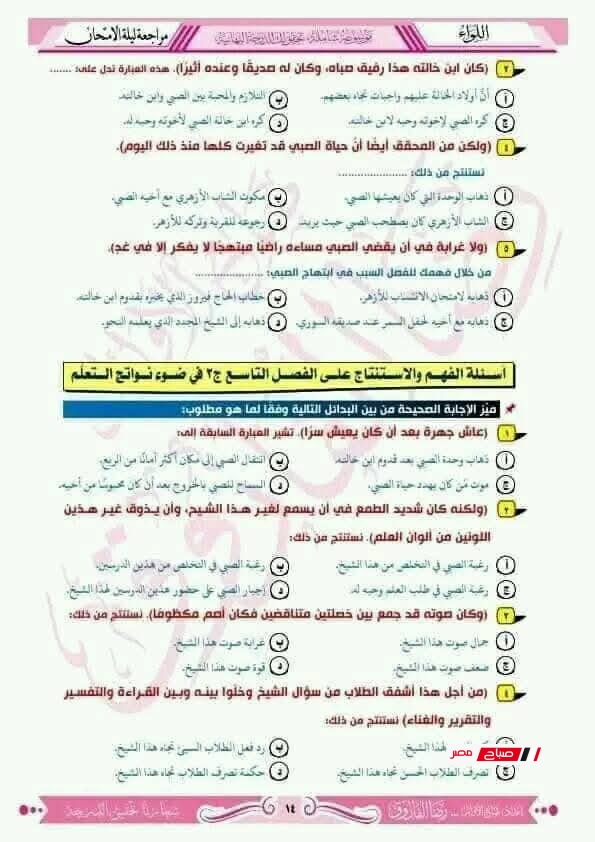 اللواء
موسوعة شاملة، تحقق لك الدرجة النهائية
مراجعة ليلة الامتحان
٣ (كان ابن خالته هذا رفيق صباه، وكان له صديقًا وعنده أثيرًا). هذه العبارة تدل على: .......
أ أنَّ أولاد الخالة عليهم واجبات تجاه بعضهم.
ب التلازم والمحبة بين الصبي وابن خالته.
ج كره الصبي لإخوته وحبه لابن خالته.
د كره ابن خالة الصبي لأخوته وحبه له.
٤ (ولكن من المحقق أيضًا أنَّ حياة الصبي قد تغيرت كلها منذ ذلك اليوم).
نستنتج من ذلك: ......................
أ ذهاب الوحدة التي كان يعيشها الصبي.
ب مكوث الشاب الأزهري مع أخيه الصبي.
ج الشاب الأزهري كان يصطحب الصبي حيث يريد.
د رجوعه للقرية وتركه للأزهر.
٥ (ولا غرابة في أن يقضي الصبي مساءه راضيًا مبتهجًا لا يفكر إلا في غدٍ).
من خلال فهمك للفصل السبب في ابتهاج الصبي: ......................
أ ذهابه لامتحان الانتساب للأزهر.
ب خطاب الحاج فيروز الذي يخبره بقدوم ابن خالته.
ج ذهابه مع أخيه لحفل السمر عند صديقه السوري.
د ذهابه إلى الشيخ المجدد الذي يعلمه النحو.
أسئلة الفهم والاستنتاج على الفصل التاسع ج٢ في ضوء نواتج التعلم
ميّز الإجابة الصحيحة من بين البدائل التالية وفقًا لما هو مطلوب:
١ (عاش جهرة بعد أن كان يعيش سرًا). تشير العبارة السابقة إلى:
أ ذهاب وحدة الصبي بعد قدوم ابن خالته.
ب انتقال الصبي إلى مكان أكثر أمانًا من الربع.
ج موت مَن كان يهدد حياة الصبي.
د السماح للصبي بالخروج بعد أن كان محبوسًا من أخيه.
٢ (ولكنه كان شديد الطمع في أن يسمع لغير هذا الشيخ، وأن يذوق غير هذين
اللونين من ألوان العلم). نستنتج من ذلك:
أ رغبة الصبي في التخلص من هذا الشيخ.
ب رغبة الصبي في التخلص من هذين الدرسين.
ج رغبة الصبي في طلب العلم وحبه له.
د إجبار الصبي على حضور هذين الدرسين لهذا الشيخ.
٣ (وكان صوته قد جمع بين خصلتين متناقضين فكان أصم مكظومًا). نستنتج من ذلك:
أ جمال صوت هذا الشيخ.
ب غرابة صوت هذا الشيخ.
ج ضعف صوت هذا الشيخ.
د قوة صوت هذا الشيخ.
٤ (من أجل هذا أشفق الطلاب من سؤال الشيخ وخلّوا بينه وبين القراءة والتفسير
والتقرير والغناء) نستنتج من ذلك:
أ لهذا الشيخ.
ب رد فعل الطلاب السيئ تجاه هذا الشيخ.
ج تصرف الطلاب الحسن تجاه هذا الشيخ.
د حكمة تصرف الطلاب تجاه هذا الشيخ.
صباح مصر
رضا الفاروق
١٤
شعارنا تحقيق